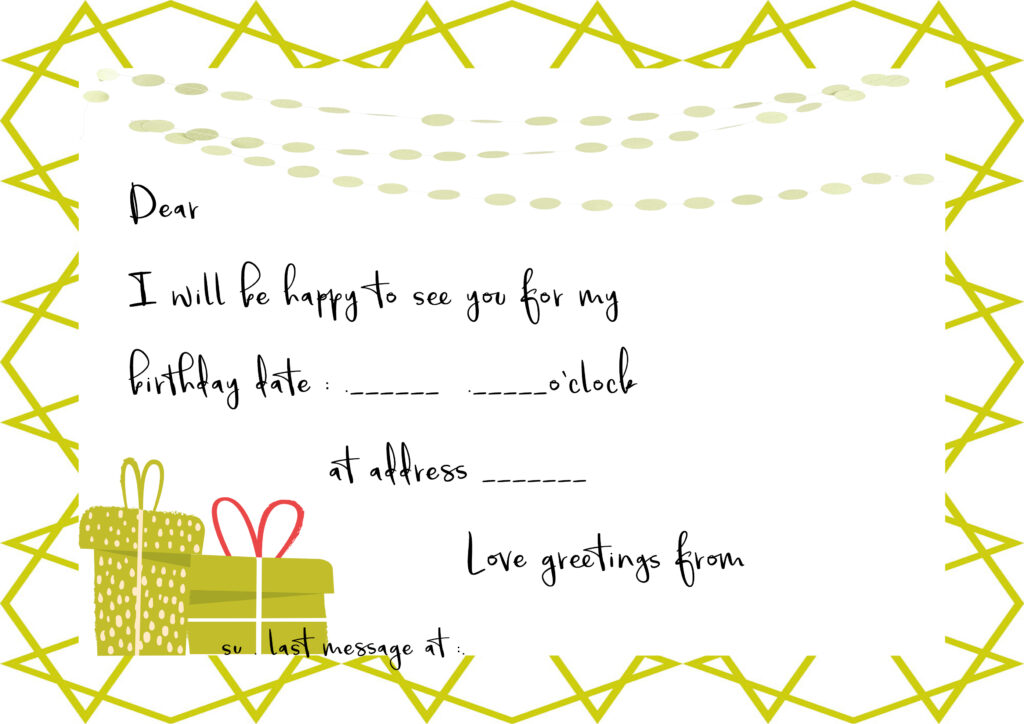 Dear
I will be happy to see you for my
birthday date : .______ ._____o'clock
at address _______
Love greetings from
su . last message at :.